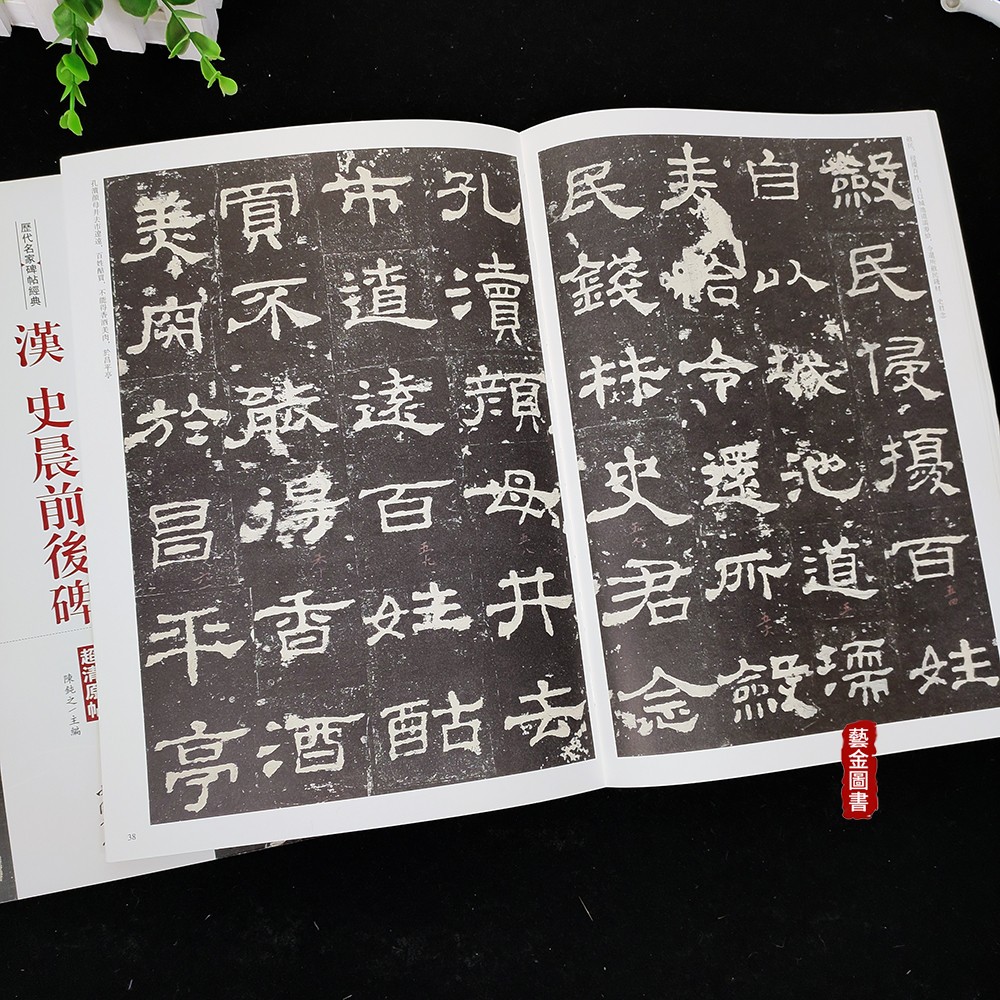 斂民侵擾百姓
自以城池道濡
麦給令還所斂
民錢材史君念
孔瀆顏母井去
市遼遠百姓酤
買不能得香酒
美肉於昌平亭
孔瀆顏母井去市遼遠，百姓酤買，不能得香酒美肉，於昌平亭
38
歷代名家碑帖經典
漢 史晨前後碑
超清原帖
陳鈍之 主編
藝金圖書